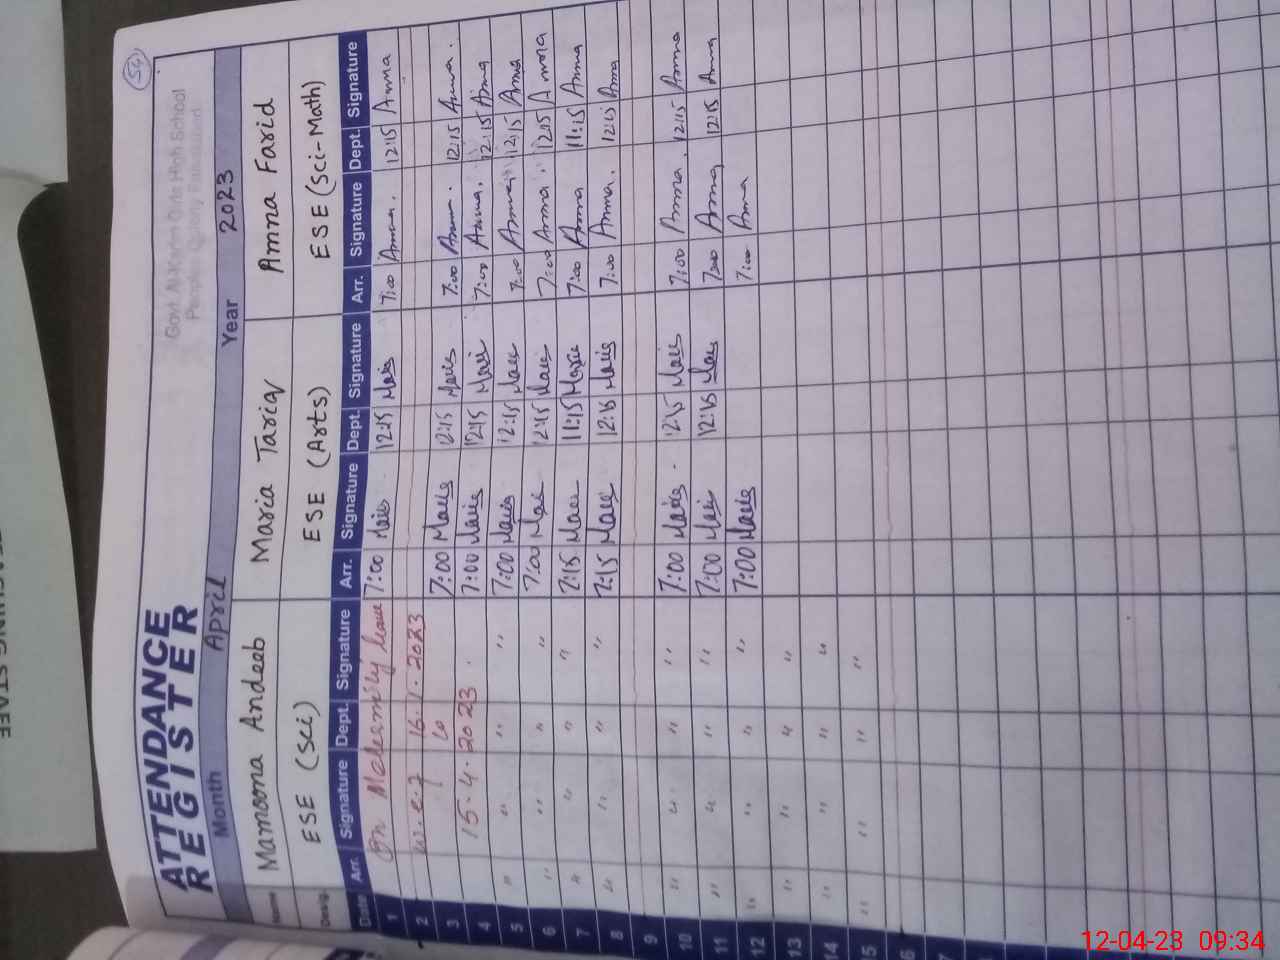 54
ATTENDANCE
REGISTER
Govt. Al-Karim Girls High School
Peoples Colony Faisalabad
Month April Year 2023
Name Mamoona Andeeb Maria Tariq Amna Farid
Desig. ESE (Sci) ESE (Arts) ESE (Sci-Math)
Date Arr. Signature Dept. Signature Arr. Signature Dept. Signature Arr. Signature Dept. Signature
1 On Maternity leave 7:00 Maria 12:15 Maria 7:00 Amna. 12:15 Amna
2 w.e.f 16.1.2023
3 to 7:00 Maria 12:15 Maria 7:00 Amna. 12:15 Amna.
4 15.4.2023. 7:00 Maria 12:15 Maria 7:00 Amna. 12:15 Amna
5 " " " " 7:00 Maria 12:15 Maria 7:00 Amna 12:15 Amna
6 " " " " 7:00 Maria 12:15 Maria 7:00 Amna. 12:15 Amna
7 " " " " 7:15 Maria 11:15 Maria 7:00 Amna 11:15 Amna
8 " " " " 7:15 Maria 12:15 Maria 7:00 Amna. 12:15 Amna
9
10 " " " " 7:00 Maria. 12:15 Maria 7:00 Amna. 12:15 Amna
11 " " " " 7:00 Maria 12:15 Maria 7:00 Amna 12:15 Amna
12 " " " " 7:00 Maria 7:00 Amna
13 " " " "
14 " " " "
15 " " " "
12-04-23 09:34